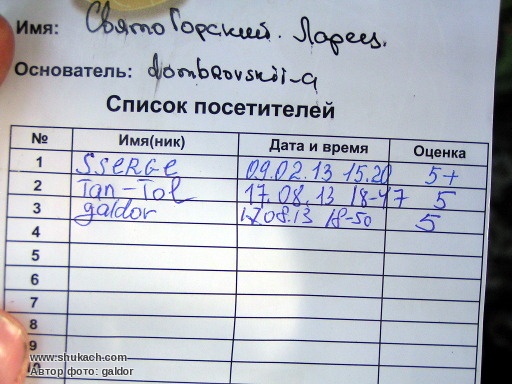 Имя: СвятоГорский. Ларец.
Основатель: dombrovskii-a
Список посетителей
№ Имя(ник) Дата и время Оценка
1 SSERGE 09.02.13 15.20 5+
2 Tan-Tol 17.08.13 18-47 5
3 galdor 17.08.13 18-50 5
4
5
6
7
8
9
10
www.shukach.com
Автор фото: galdor